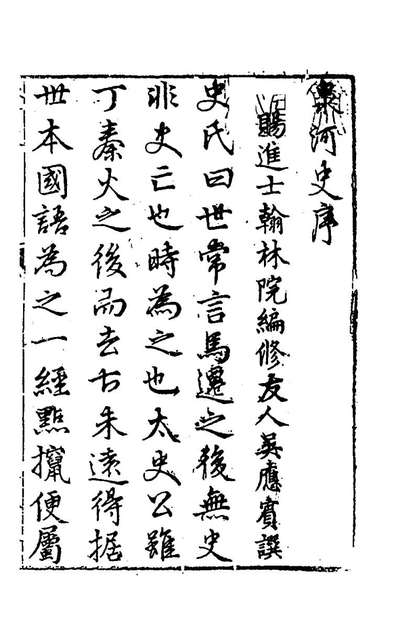 河史序
賜進士翰林院編修友人吳應賓譔
史氏曰世常言馬遷之後無史
非史亡也時為之也太史公雖
丁秦火之後而去古未遠得据
世本國語為之一經點攛便屬